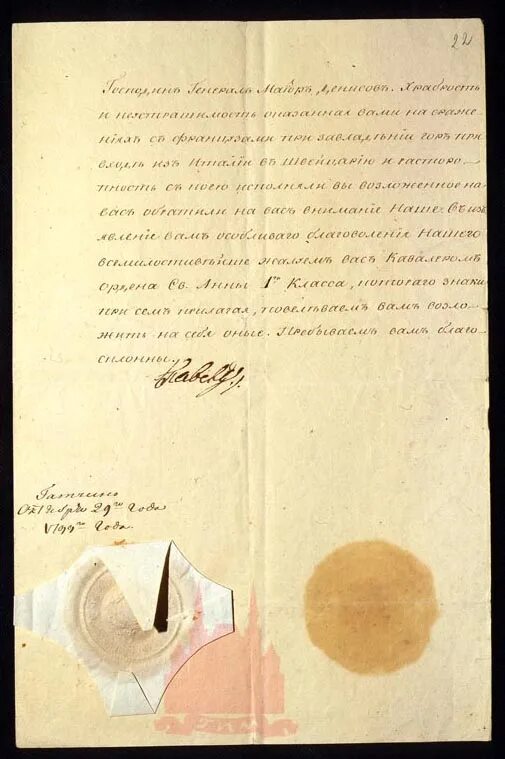 22
Господинъ Генералъ Маіоръ, Денисовъ. Храбрость
и неустрашимость оказанная вами на сраже-
ніяхъ съ французами при завладѣніи горъ при
входѣ изъ Италіи въ Швейцарію и расторо-
пность съ коею исполняли вы возложенное на
васъ обратили на васъ вниманіе Наше. Въ изъ
явленіе вамъ особливаго благоволенія Нашего
всемилостивѣйше жалуемъ васъ Кавалеромъ
ордена Св. Анны 1го Класса, котораго знаки
при семъ прилагая, повелѣваемъ вамъ возло-
жить на себя оные. Пребываемъ вамъ благо-
склонны.
Павелъ
Гатчино
Октября 29го года
1799го года.